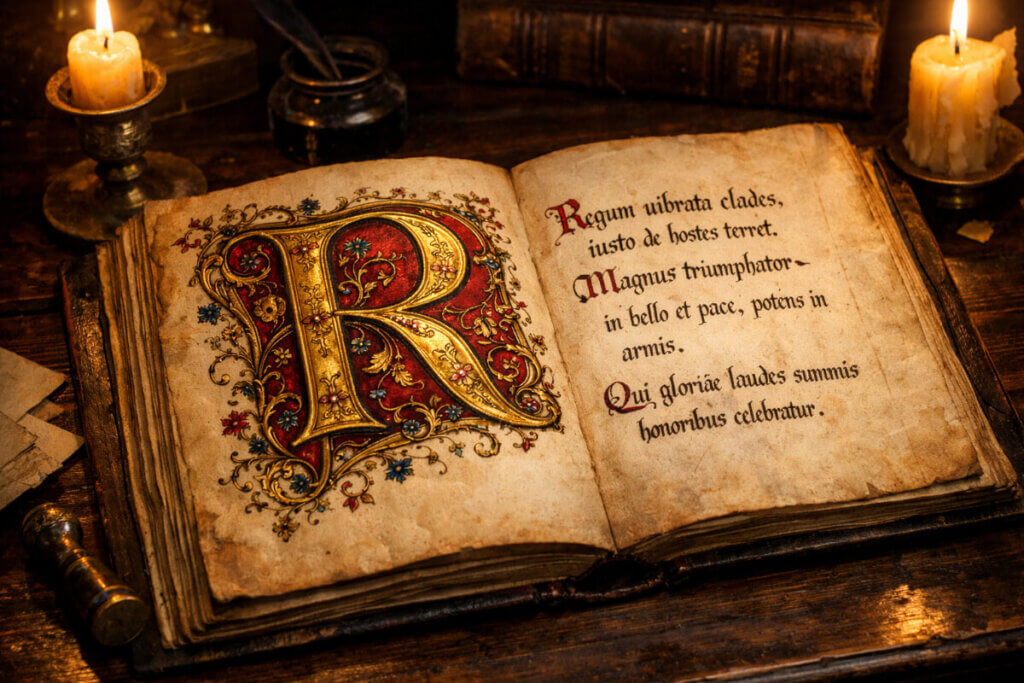 R
Regum uibrata clades,
iusto de hostes terret.
Magnus triumphator
in bello et pace, potens in
armis.
Qui gloriãe laudes summis
honoribus celebratur.